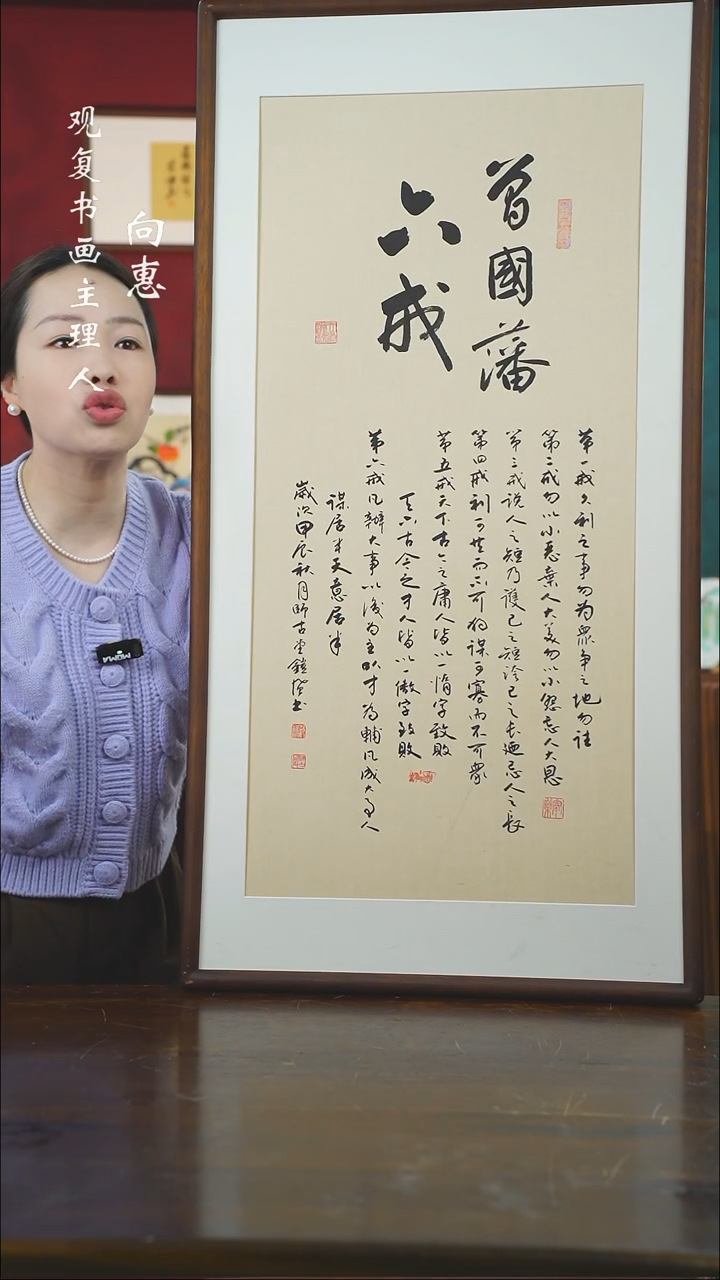 观复书画主理人
向惠
曾國藩
六戒
第一戒久利之事勿为眾争之地勿往
第二戒勿以小恶棄人大美勿以小怨忘人大恩
第三戒说人之短乃護己之短誇己之长廼忌人之長
第四戒利可共而不可独谋可寡而不可眾
第五戒天下古今之庸人皆以一惰字致败
天下古今之才人皆以一傲字致败
第六戒凡辦大事以識为主以才为輔凡成大事人
谋居半天意居半
歲次甲辰秋月
MOMA